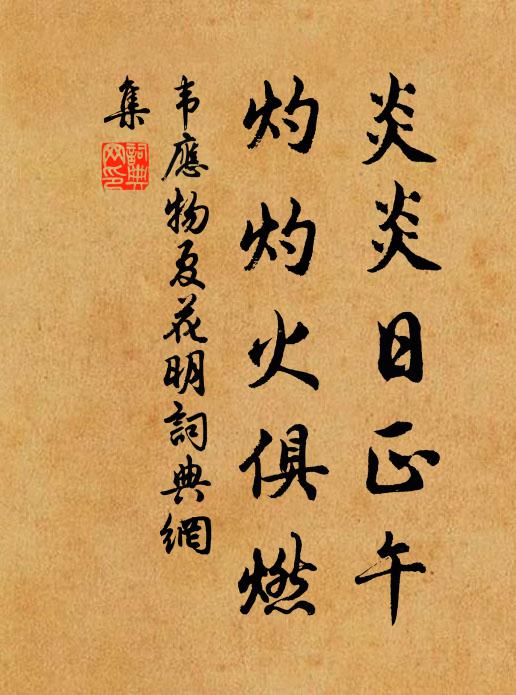 炎炎日正午
灼灼火俱燃
韦應物夏花明詞典網
集
詞典
网印